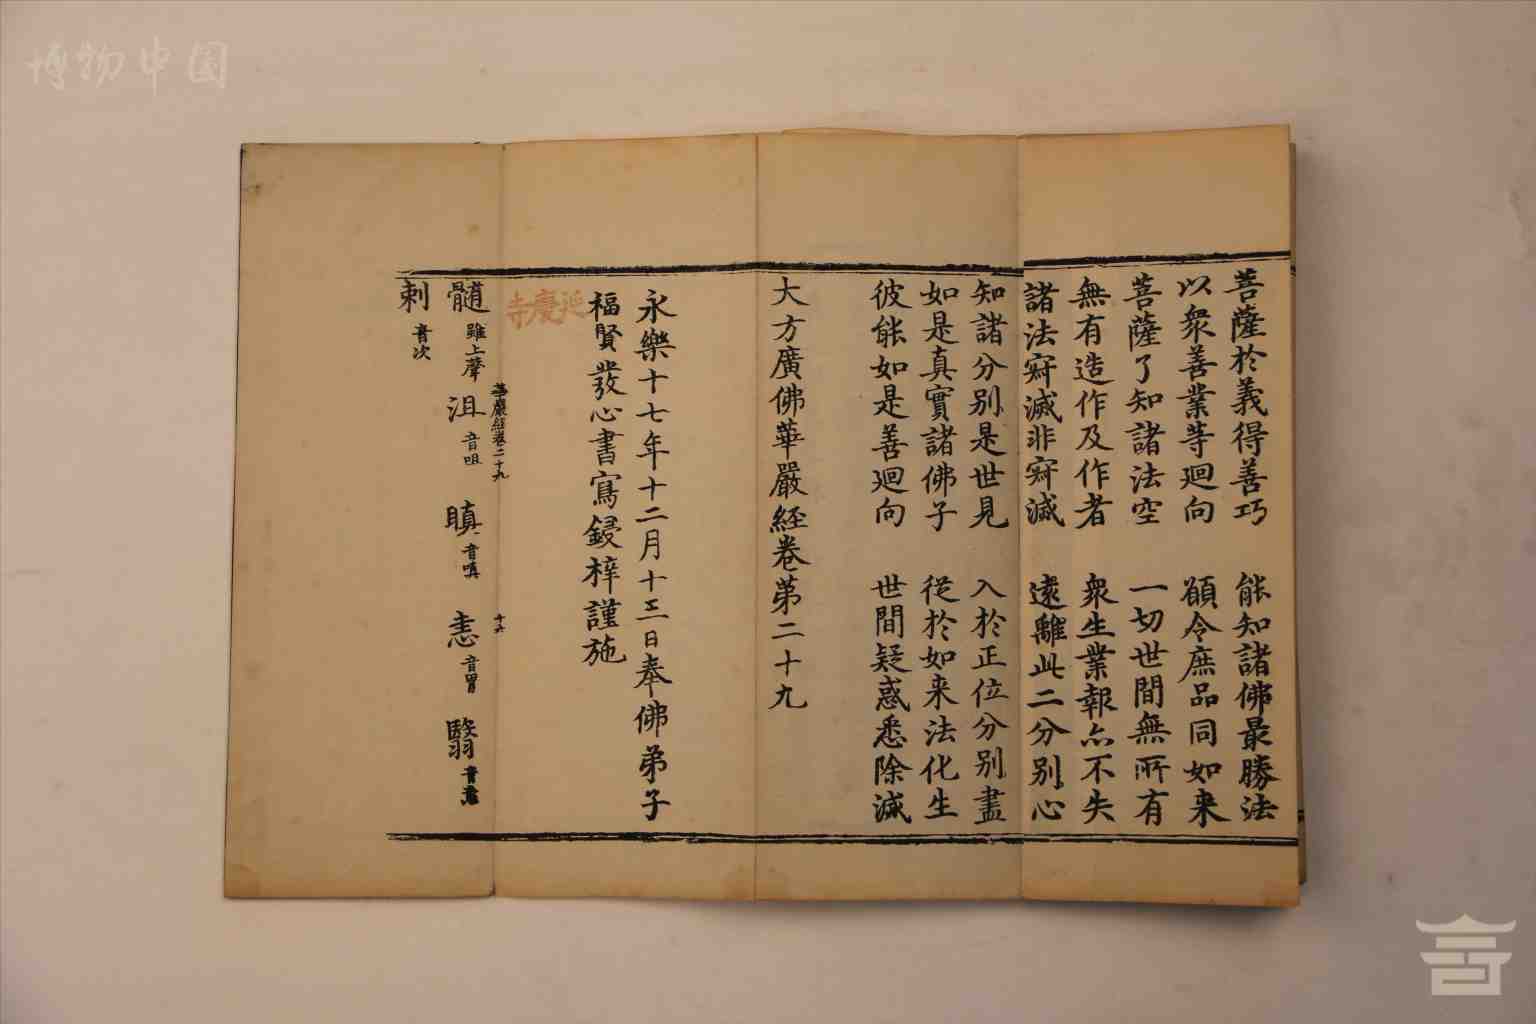 博物中国
菩薩於義得善巧　能知諸佛最勝法
以衆善業等廻向　願令庶品同如来
菩薩了知諸法空　一切世間無所有
無有造作及作者　衆生業報亦不失
諸法寂滅非寂滅　遠離此二分别心
知諸分别是世見　入於正位分别盡
如是真實諸佛子　從於如来法化生
彼能如是善廻向　世間疑惑悉除滅
大方廣佛華嚴経卷第二十九
永樂十七年十二月十三日奉佛弟子
福賢發心書寫鋟梓謹施
延慶寺
華嚴經卷二十九　十六
髓 雖上聲　沮 音咀　瞋 音嗔　恚 音胃　翳 音意
刺 音次